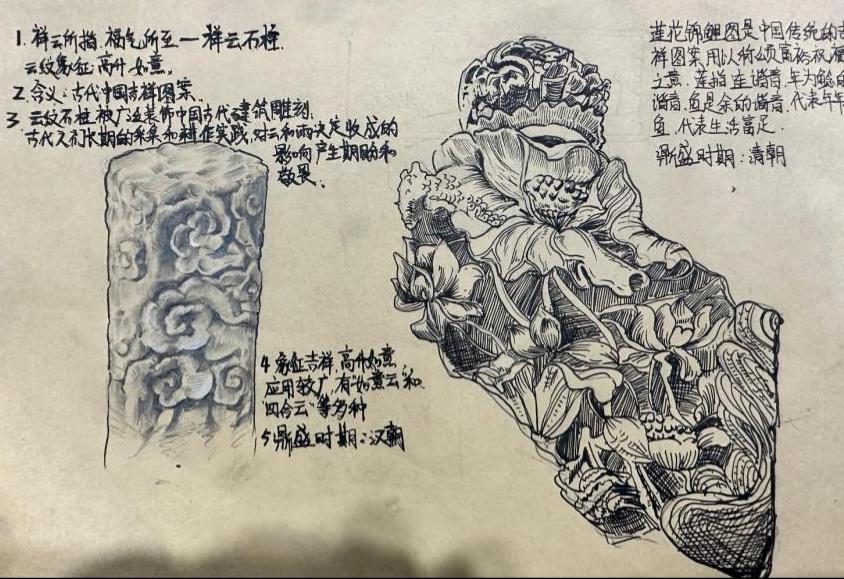 1. 祥云所指.福气所至一祥云石柱.
云纹象征:高升.如意。
2. 含义:古代中国吉祥图案、
3 云纹石柱被广泛装饰中国古代建筑雕刻.
古代人们长期的采集和耕作实践,对云和雨决定收成的
影响产生期盼和
敬畏.
4 象征吉祥,高升如意,
应用较广,有"如意云"和
"四合云"等多种
5 鼎盛时期:汉朝
莲花锦鲤图是中国传统的吉
祥图案.用以称颂富裕祝福
之意.莲指连谐音,年为鲶的
谐音.鱼是余的谐音.代表年年
鱼.代表生活富足.
鼎盛时期:清朝